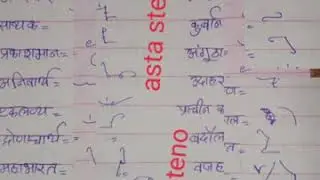 साधक =
प्रकाशमान =
अनिवार्य =
एकलव्य =
द्रोणाचार्य =
महाभारत =
asta ste
teno
कुर्बान =
अंगुठा =
उदाहर
ण =
प्राचीन क
बदौल
त =
वजह